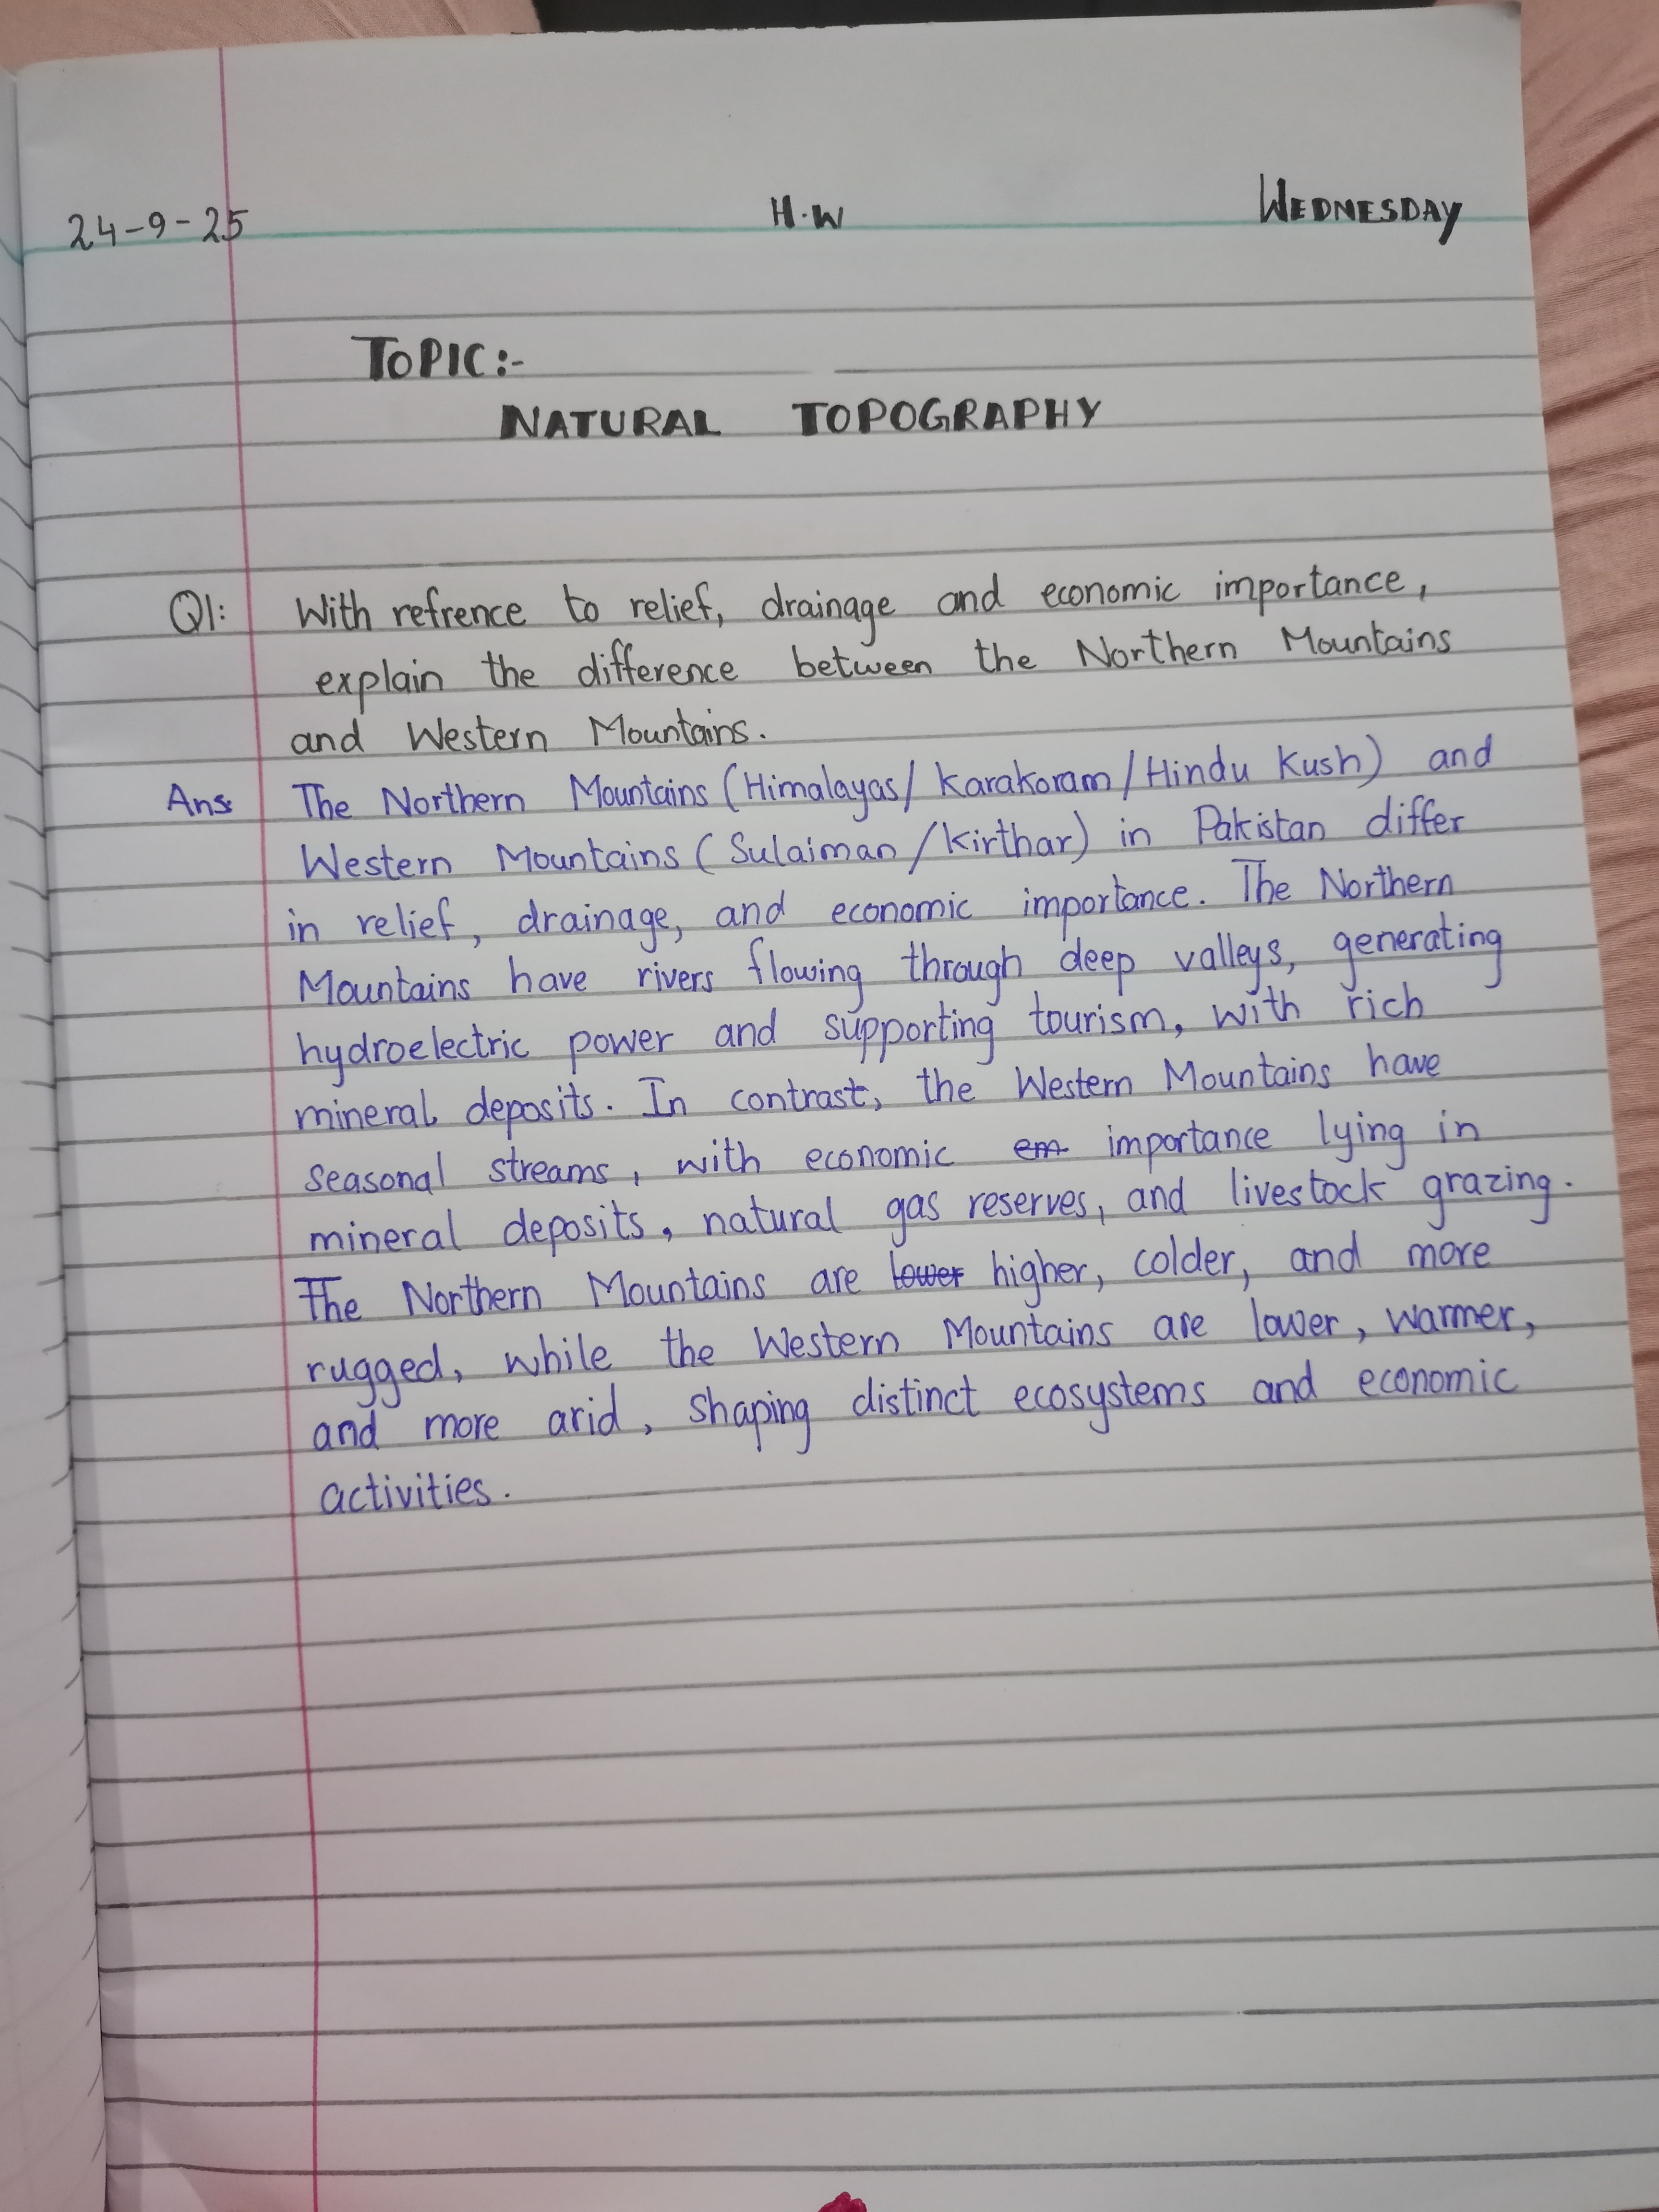 24-9-25 H.W WEDNESDAY
TOPIC:-
NATURAL TOPOGRAPHY
Q1: With refrence to relief, drainage and economic importance,
explain the difference between the Northern Mountains
and Western Mountains.
Ans The Northern Mountains (Himalayas/Karakoram/Hindu Kush) and
Western Mountains (Sulaiman/Kirthar) in Pakistan differ
in relief, drainage, and economic importance. The Northern
Mountains have rivers flowing through deep valleys, generating
hydroelectric power and supporting tourism, with rich
mineral deposits. In contrast, the Western Mountains have
seasonal streams, with economic em importance lying in
mineral deposits, natural gas reserves, and livestock grazing.
The Northern Mountains are lower higher, colder, and more
rugged, while the Western Mountains are lower, warmer,
and more arid, shaping distinct ecosystems and economic
activities.